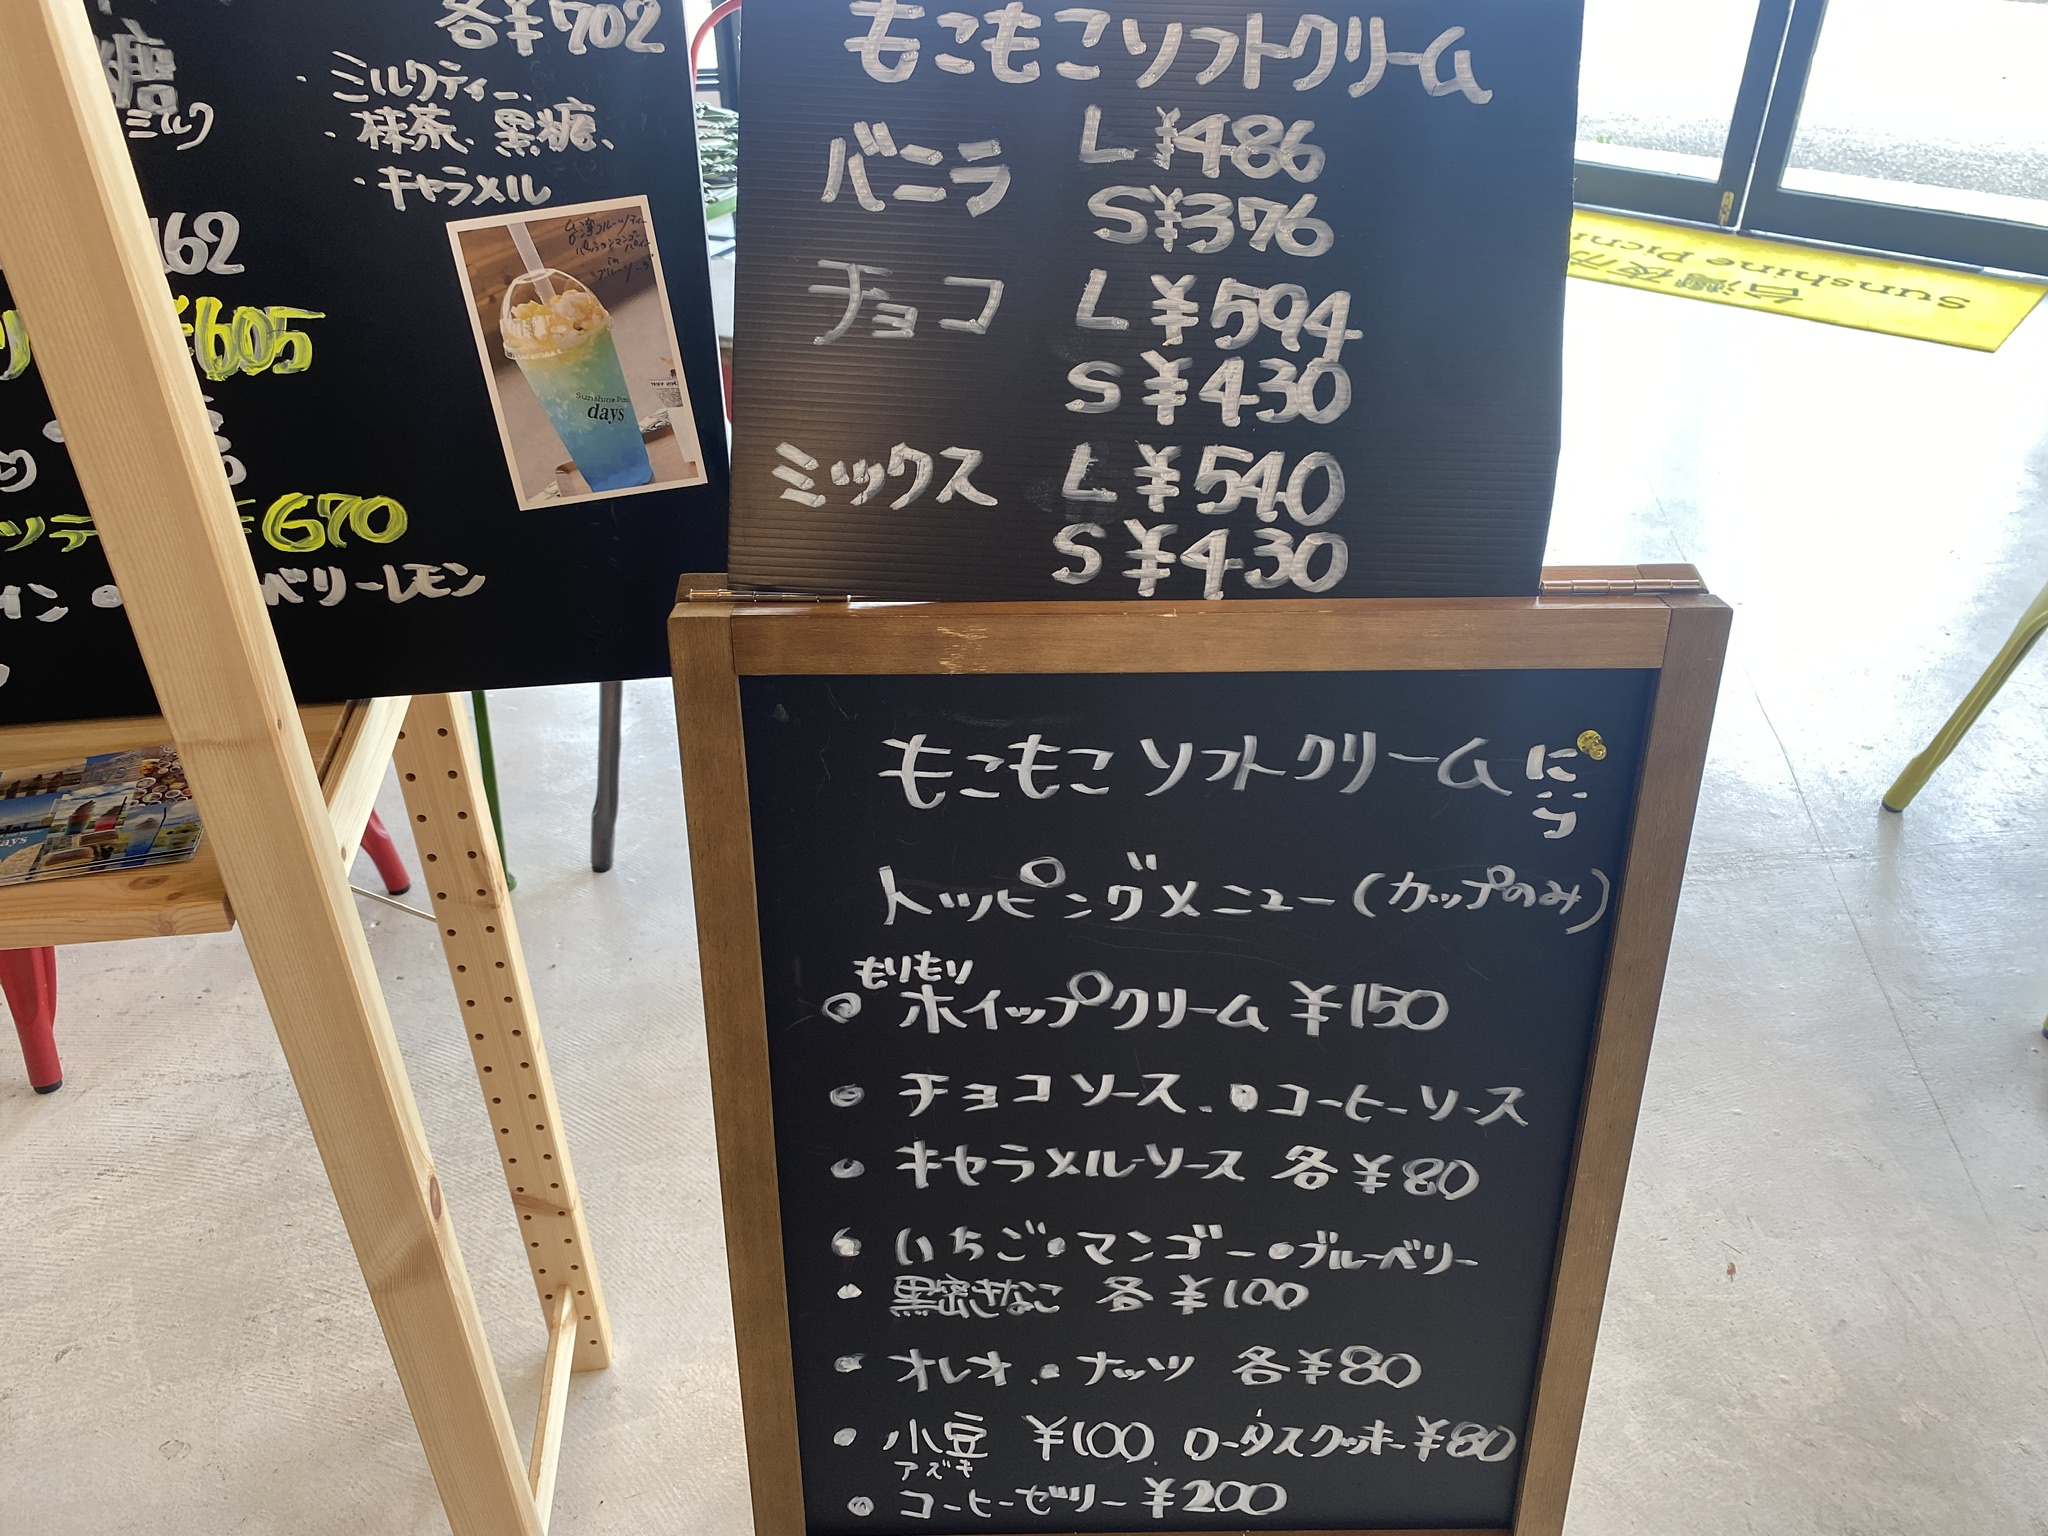 各¥702
糖
ミルク
・ミルクティー、
・抹茶、黒糖、
・キャラメル
162
¥605
¥670
ベリーレモン
Sunshine
days
もこもこソフトクリーム
バニラ L ¥486
S ¥376
チョコ L ¥594
S ¥430
ミックス L ¥540
S ¥430
もこもこソフトクリームに
トッピングメニュー(カップのみ)
もりもり
ホイップクリーム ¥150
チョコソース、コーヒーソース
キャラメルソース 各¥80
いちご・マンゴー・ブルーベリー
・黒蜜きなこ 各¥100
・オレオ・ナッツ 各¥80
・小豆 ¥100 ロータスクッキー¥80
アズキ
コーヒーゼリー ¥200
台湾夜市
Sunshine Picni